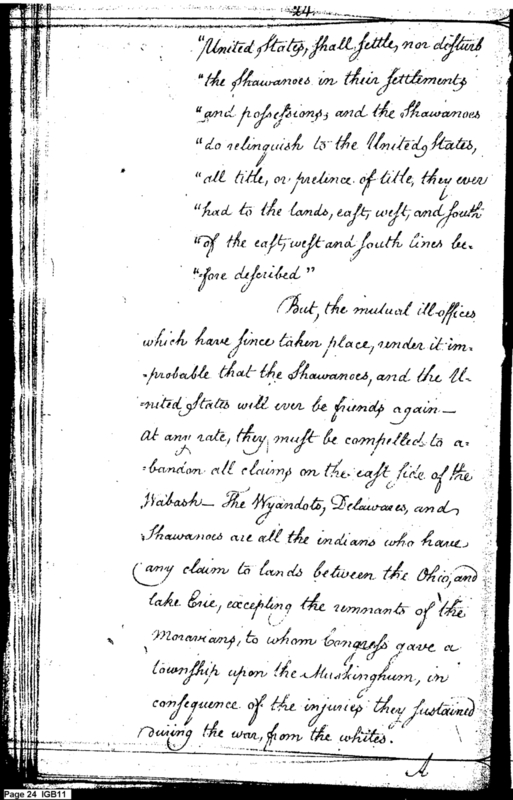 24
"United States, shall settle, nor disturb
"the Shawanoes in their settlements
"and possessions, and the Shawanoes
"do relinquish to the United States,
"all title, or pretence of title, they ever
"had to the lands, east, west, and south
"of the east, west and south lines be-
"fore described"
But, the mutual ill-offices
which have since taken place, render it im-
-probable that the Shawanoes, and the U-
-nited States will ever be friends again—
At any rate, they must be compelled to a-
-bandon all claims on the east side of the
Wabash— The Wyandots, Delawares, and
Shawanoes are all the indians who have
any claim to lands between the Ohio, and
lake Erie, excepting the remnants of the
Moravians, to whom Congress gave a
township upon the Muskinghum, in
consequence of the injuries they sustained
during the war, from the whites.
A
Page 24 IGB11